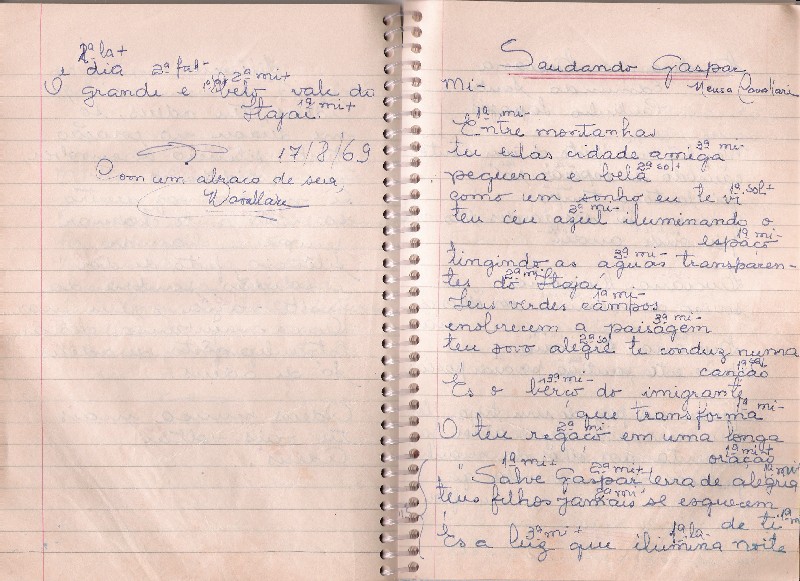 1ª la+
dia 2ª fa#-
É grande e 1ª si 2ª mi+
belo vale do
Itajaí. 1ª mi+
17/8/69
Com um abraço de seu,
Cavallari
Saudando Gaspar
Neusa Cavallari
Mi-
1ª mi-
Entre montanhas
tu estás cidade amiga 3ª mi-
pequena e bela 2ª sol+
como um sonho eu te vi 1ª sol+
teu céu azul iluminando o 2ª mi-
espaço 1ª mi-
tingindo as águas transparen- 3ª mi-
tes do Itajaí 2ª mi
Teus verdes campos 1ª mi-
enobrecem a paisagem 3ª mi-
teu povo alegre te conduz numa 2ª sol
canção
És o berço do imigrante 3ª mi-
que transforma 1ª mi-
O teu regaço em uma longa 2ª mi-
oração 1ª mi+
1ª mi+ 2ª mi+ 1ª mi
"Salve Gaspar terra de alegria
teus filhos jamais se esquecem 2ª mi
de ti 1ª mi
3ª mi+ 1ª la-
És a luz que ilumina noite